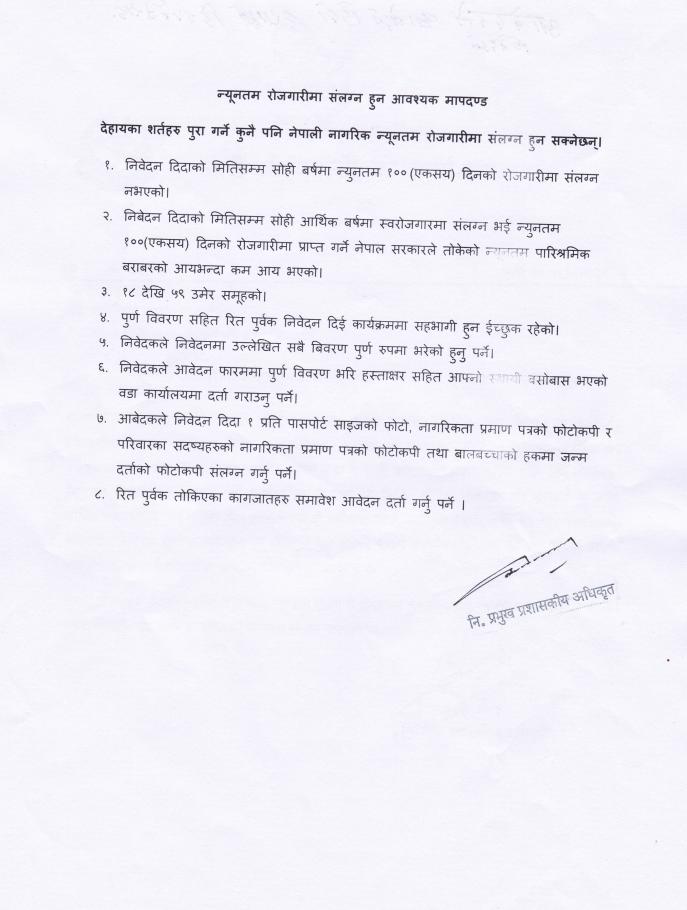 न्यूनतम रोजगारीमा संलग्न हुन आवश्यक मापदण्ड
देहायका शर्तहरु पुरा गर्ने कुनै पनि नेपाली नागरिक न्यूनतम रोजगारीमा संलग्न हुन सक्नेछन्।
१. निवेदन दिदाको मितिसम्म सोही बर्षमा न्युनतम १०० (एकसय) दिनको रोजगारीमा संलग्न
नभएको।
२. निबेदन दिदाको मितिसम्म सोही आर्थिक बर्षमा स्वरोजगारमा संलग्न भई न्युनतम
१००(एकसय) दिनको रोजगारीमा प्राप्त गर्ने नेपाल सरकारले तोकेको न्युनतम पारिश्रमिक
बराबरको आयभन्दा कम आय भएको।
३. १८ देखि ५९ उमेर समूहको।
४. पुर्ण विवरण सहित रित पुर्वक निवेदन दिई कार्यक्रममा सहभागी हुन ईच्छुक रहेको।
५. निवेदकले निवेदनमा उल्लेखित सबै बिवरण पुर्ण रुपमा भरेको हुनु पर्ने।
६. निवेदकले आवेदन फारममा पुर्ण विवरण भरि हस्ताक्षर सहित आफ्नो स्थायी बसोबास भएको
वडा कार्यालयमा दर्ता गराउनु पर्ने।
७. आबेदकले निवेदन दिदा १ प्रति पासपोर्ट साइजको फोटो, नागरिकता प्रमाण पत्रको फोटोकपी र
परिवारका सदष्यहरुको नागरिकता प्रमाण पत्रको फोटोकपी तथा बालबच्चाको हकमा जन्म
दर्ताको फोटोकपी संलग्न गर्नु पर्ने।
८. रित पुर्वक तोकिएका कागजातहरु समावेश आवेदन दर्ता गर्नु पर्ने ।
नि. प्रमुख प्रशासकीय अधिकृत